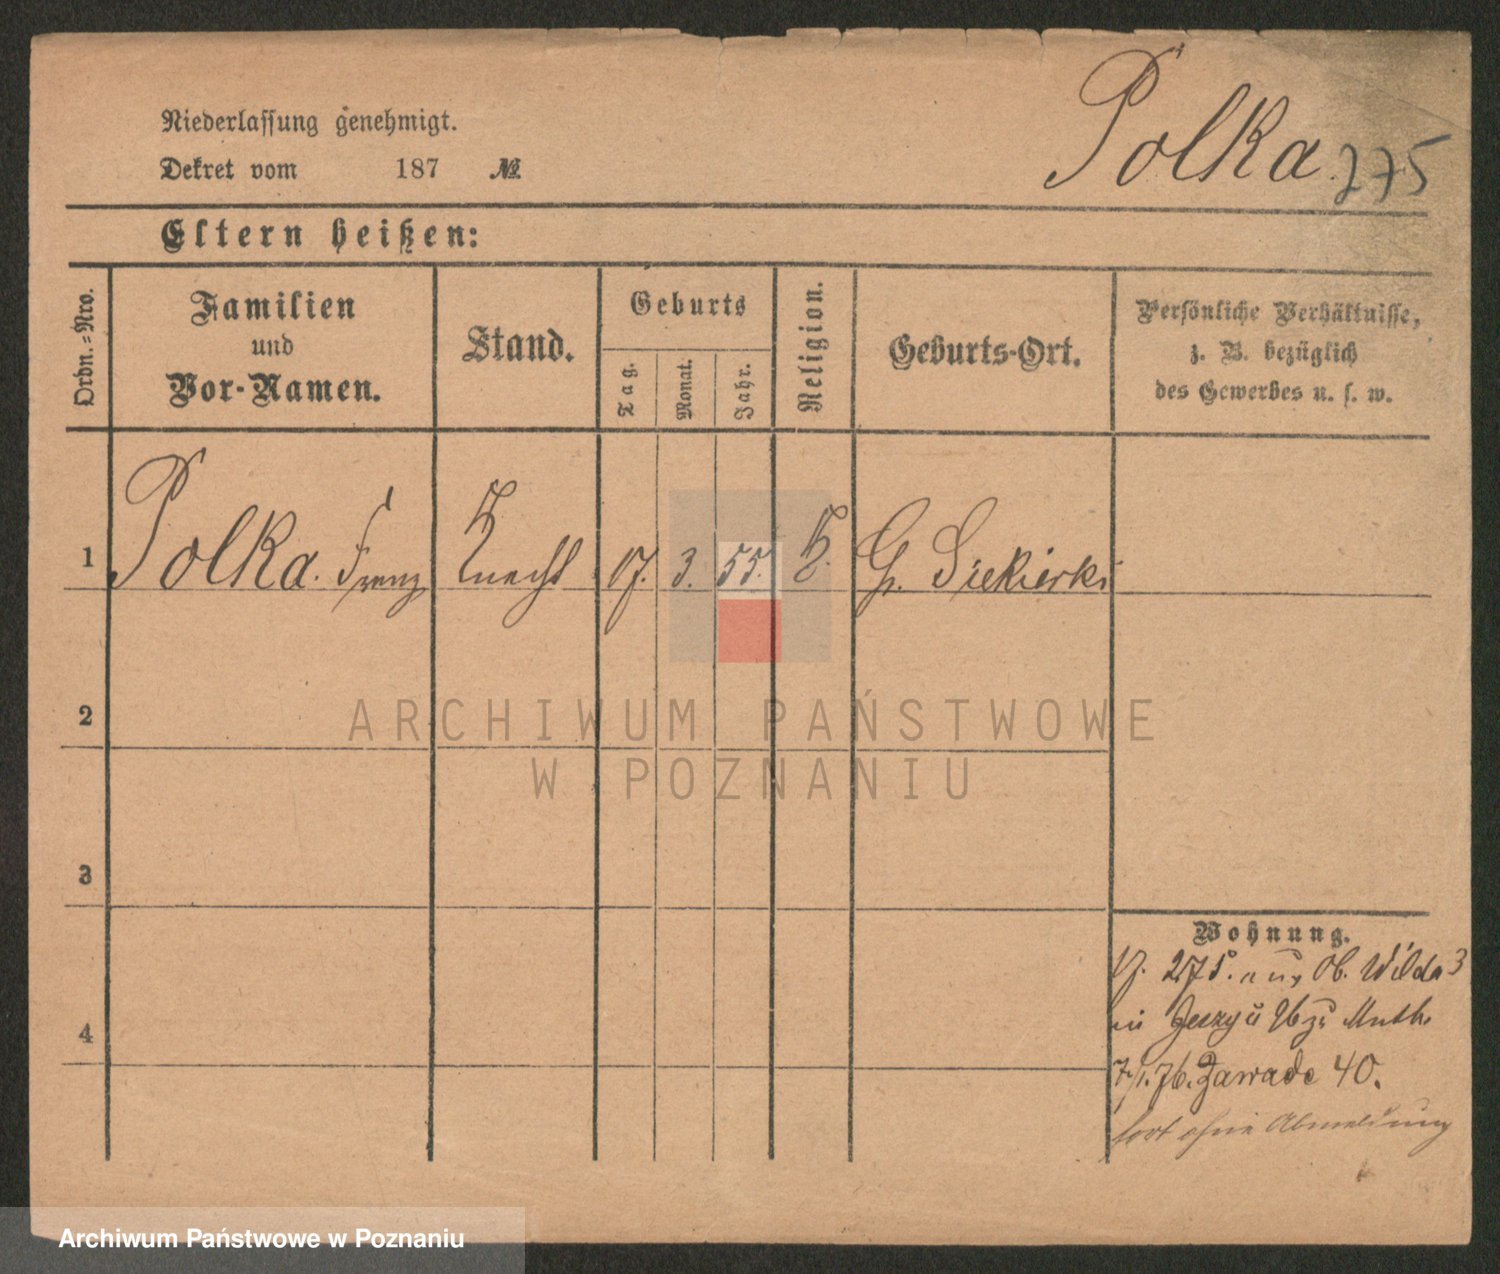 Polka. 275
Niederlassung genehmigt.
Dekret vom 187 №
Eltern heißen:
Ordn.-Nro.
Familien
und
Vor-Namen.
Stand.
Geburts
Tag.
Monat.
Jahr.
Religion.
Geburts-Ort.
Persönliche Verhältnisse,
z. B. bezüglich
des Gewerbes u. s. w.
1 Polka. Franz Knecht 17. 3. 55. K. Gr. Siekierki
2
3
4
Wohnung.
275. Ob. Wilda 3
Mutter
7/1. 76. Zawade 40.
fort ohne Abmeldung
ARCHIWUM PAŃSTWOWE
W POZNANIU
Archiwum Państwowe w Poznaniu